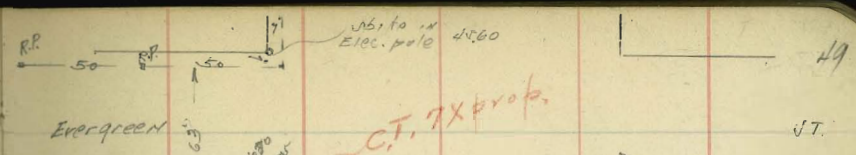 R.P.
50
50
7
Elec. pole 45.60
49
Evergreen
63'
C.T. 7X prop.
J.T.